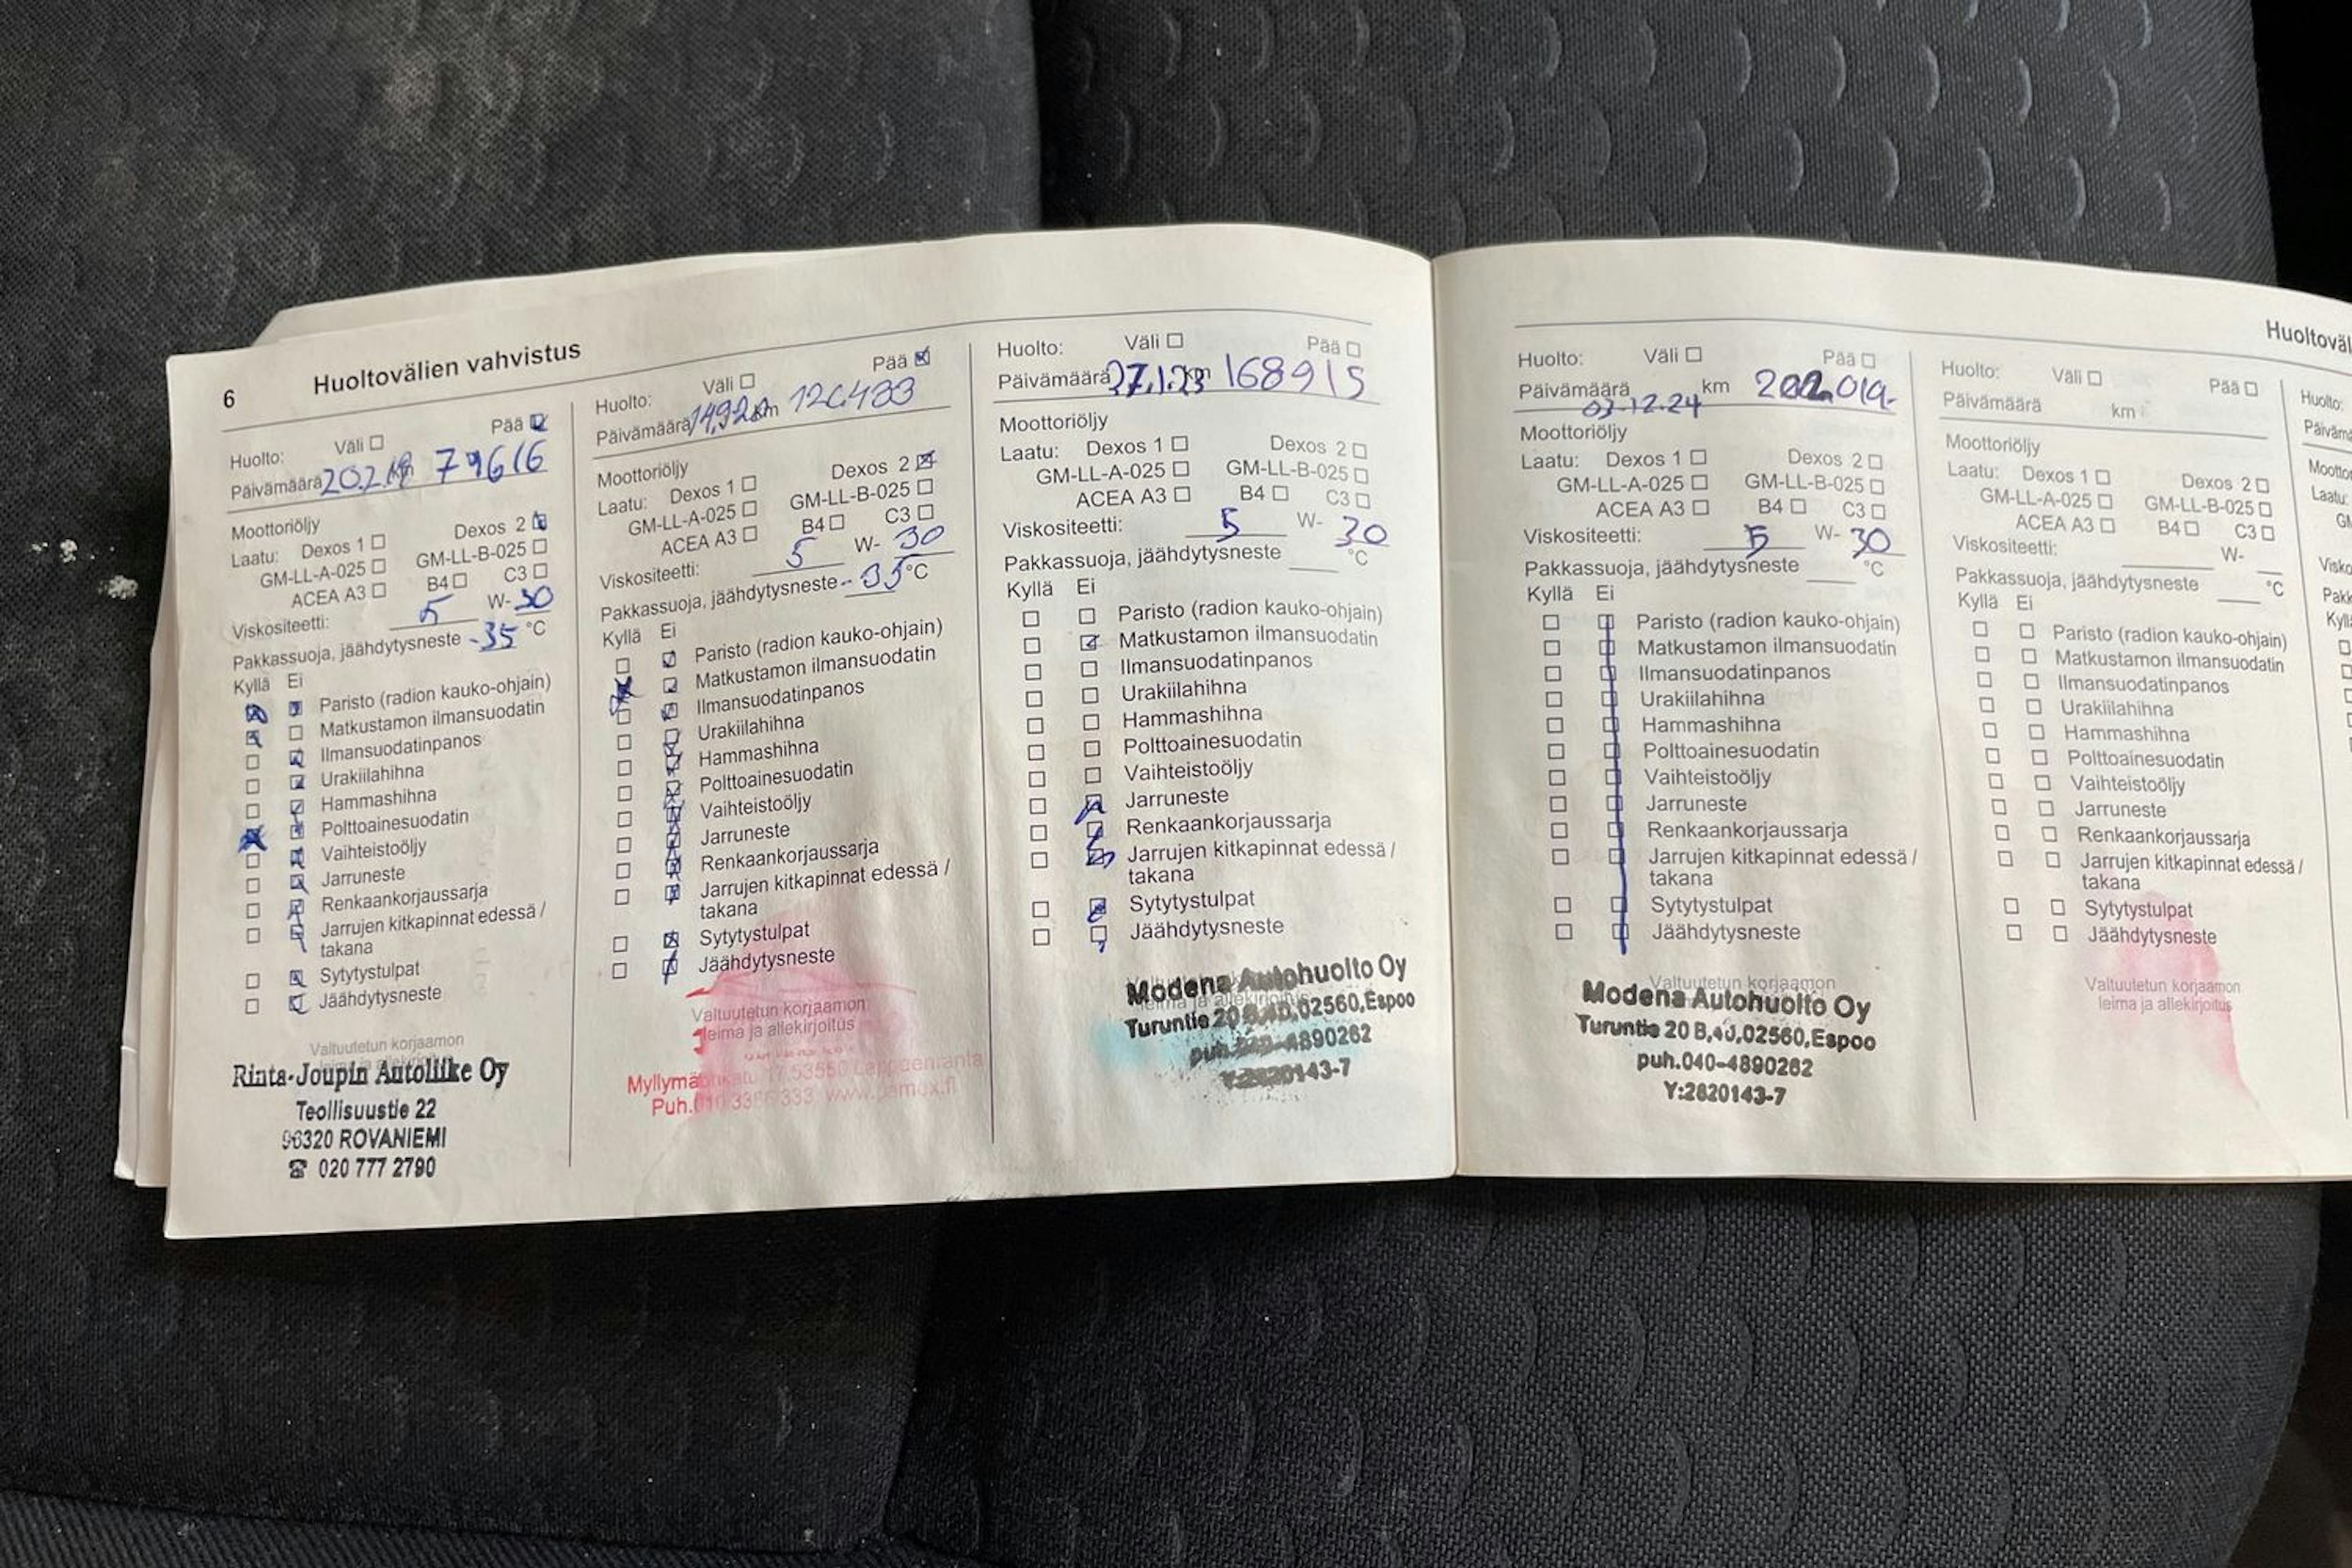 6 Huoltovälien vahvistus
Huolto: Väli Pää
Päivämäärä 20.2.19 km 79616
Moottoriöljy
Laatu: Dexos 1 Dexos 2
GM-LL-A-025 GM-LL-B-025
ACEA A3 B4 C3
Viskositeetti: 5 W- 30
Pakkassuoja, jäähdytysneste -35 °C
Kyllä Ei
Paristo (radion kauko-ohjain)
Matkustamon ilmansuodatin
Ilmansuodatinpanos
Urakiilahihna
Hammashihna
Polttoainesuodatin
Vaihteistoöljy
Jarruneste
Renkaankorjaussarja
Jarrujen kitkapinnat edessä /
takana
Sytytystulpat
Jäähdytysneste
Valtuutetun korjaamon
Rinta-Joupin Autoliike Oy
Teollisuustie 22
96320 ROVANIEMI
☎ 020 777 2790
Huolto: Väli Pää
Päivämäärä km
Moottoriöljy
Laatu: Dexos 1 Dexos 2
GM-LL-A-025 GM-LL-B-025
ACEA A3 B4 C3
Viskositeetti: 5 W- 30
Pakkassuoja, jäähdytysneste -35 °C
Kyllä Ei
Paristo (radion kauko-ohjain)
Matkustamon ilmansuodatin
Ilmansuodatinpanos
Urakiilahihna
Hammashihna
Polttoainesuodatin
Vaihteistoöljy
Jarruneste
Renkaankorjaussarja
Jarrujen kitkapinnat edessä /
takana
Sytytystulpat
Jäähdytysneste
Valtuutetun korjaamon
leima ja allekirjoitus
53550 Lappeenranta
Puh. 333 www.
Huolto: Väli Pää
Päivämäärä 27.1.23 km 168915
Moottoriöljy
Laatu: Dexos 1 Dexos 2
GM-LL-A-025 GM-LL-B-025
ACEA A3 B4 C3
Viskositeetti: 5 W- 30
Pakkassuoja, jäähdytysneste °C
Kyllä Ei
Paristo (radion kauko-ohjain)
Matkustamon ilmansuodatin
Ilmansuodatinpanos
Urakiilahihna
Hammashihna
Polttoainesuodatin
Vaihteistoöljy
Jarruneste
Renkaankorjaussarja
Jarrujen kitkapinnat edessä /
takana
Sytytystulpat
Jäähdytysneste
Modena Autohuolto Oy
Turuntie 20 B,40,02560,Espoo
puh.040-4890262
Y:2820143-7
Huolto: Väli Pää
Päivämäärä 03.12.24 km 202019
Moottoriöljy
Laatu: Dexos 1 Dexos 2
GM-LL-A-025 GM-LL-B-025
ACEA A3 B4 C3
Viskositeetti: 5 W- 30
Pakkassuoja, jäähdytysneste °C
Kyllä Ei
Paristo (radion kauko-ohjain)
Matkustamon ilmansuodatin
Ilmansuodatinpanos
Urakiilahihna
Hammashihna
Polttoainesuodatin
Vaihteistoöljy
Jarruneste
Renkaankorjaussarja
Jarrujen kitkapinnat edessä /
takana
Sytytystulpat
Jäähdytysneste
Valtuutetun korjaamon
Modena Autohuolto Oy
Turuntie 20 B,40,02560,Espoo
puh.040-4890262
Y:2820143-7
Huoltoväl
Huolto: Väli Pää
Päivämäärä km
Moottoriöljy
Laatu: Dexos 1 Dexos 2
GM-LL-A-025 GM-LL-B-025
ACEA A3 B4 C3
Viskositeetti: W-
Pakkassuoja, jäähdytysneste °C
Kyllä Ei
Paristo (radion kauko-ohjain)
Matkustamon ilmansuodatin
Ilmansuodatinpanos
Urakiilahihna
Hammashihna
Polttoainesuodatin
Vaihteistoöljy
Jarruneste
Renkaankorjaussarja
Jarrujen kitkapinnat edessä /
takana
Sytytystulpat
Jäähdytysneste
Valtuutetun korjaamon
leima ja allekirjoitus
Huolto:
Päivämä
Moottor
Laatu:
Visko
Pakk
Kyll